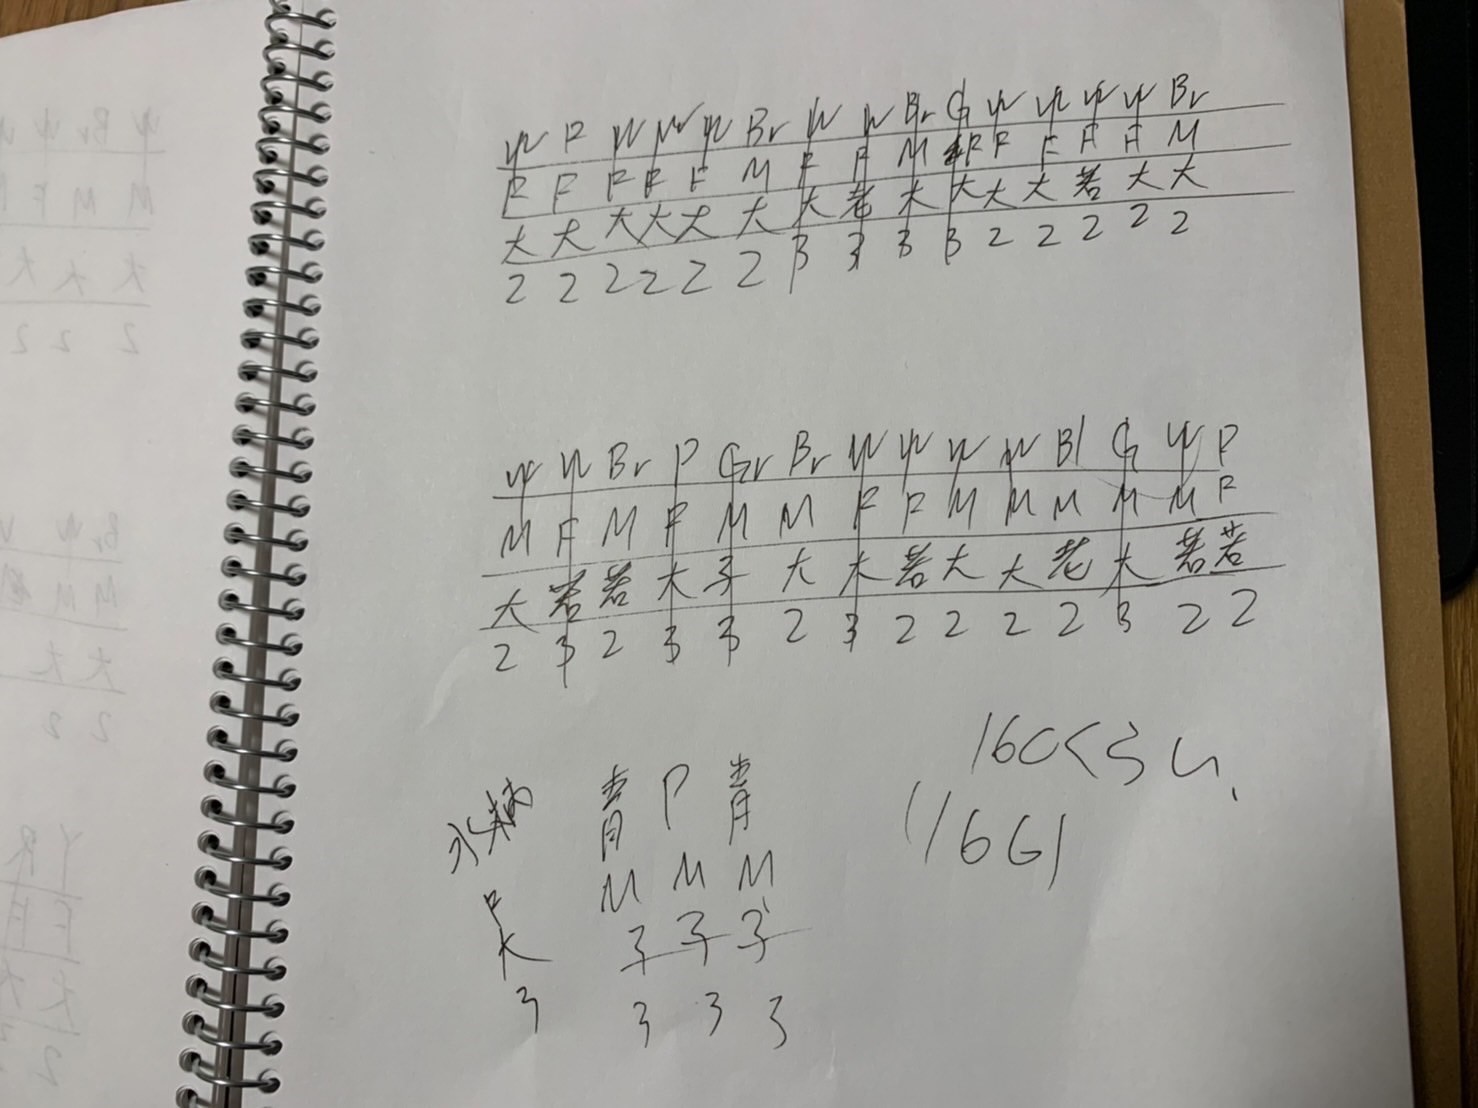 W P W W W Br W W Br G W W W W Br
F F F F F M F F M F F F F F M
大 大 大 大 大 大 大 老 大 大 大 大 若 大 大
2 2 2 2 2 2 3 3 3 3 2 2 2 2 2
W W Br P Gr Br W W W W Bl G W P
M F M F M M F F M M M M M F
大 若 若 大 子 大 大 若 大 大 老 大 若 若
2 3 2 3 3 2 3 2 2 2 2 3 2 2
青 P 青
F M M M
大 子 子 子
3 3 3 3
160くらい
1661